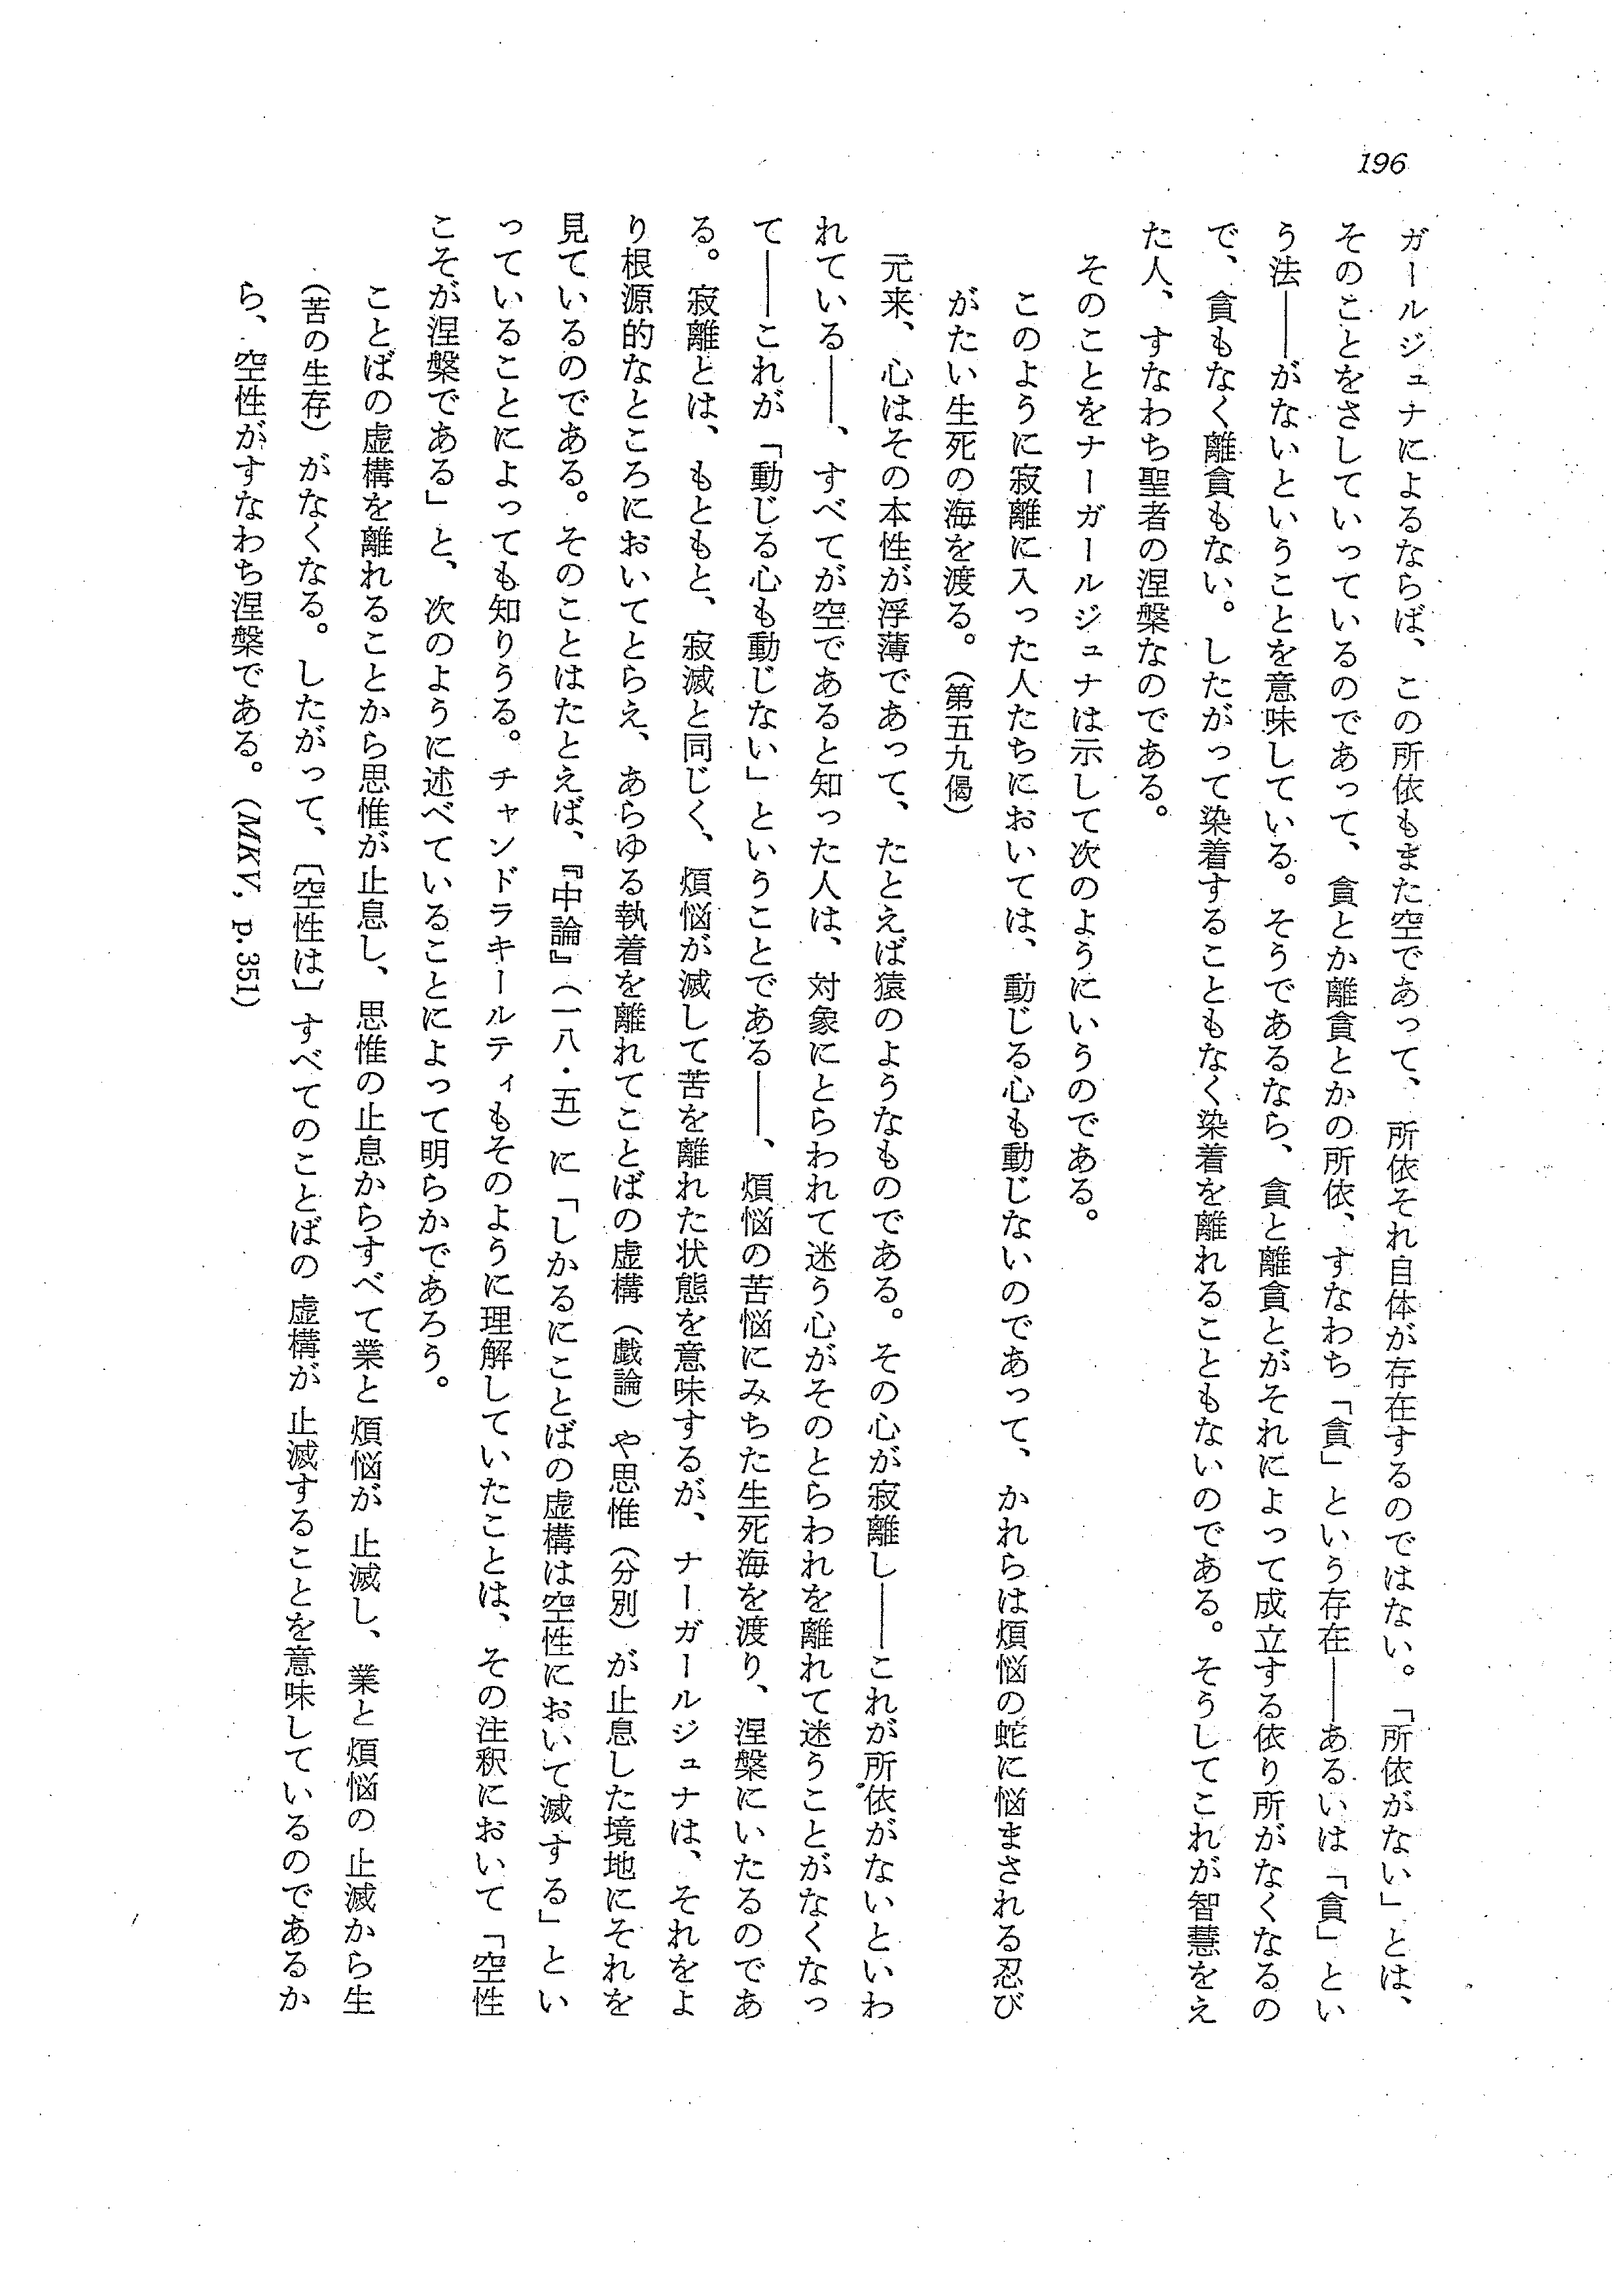 196
ガールジュナによるならば、この所依もまた空であって、所依それ自体が存在するのではない。「所依がない」とは、
そのことをさしていっているのであって、貪とか離貪とかの所依、すなわち「貪」という存在――あるいは「貪」とい
う法――がないということを意味している。そうであるなら、貪と離貪とがそれによって成立する依り所がなくなるの
で、貪もなく離貪もない。したがって染着することもなく染着を離れることもないのである。そうしてこれが智慧をえ
た人、すなわち聖者の涅槃なのである。
そのことをナーガールジュナは示して次のようにいうのである。
このように寂離に入った人たちにおいては、動じる心も動じないのであって、かれらは煩悩の蛇に悩まされる忍び
がたい生死の海を渡る。（第五九偈）
元来、心はその本性が浮薄であって、たとえば猿のようなものである。その心が寂離し――これが所依がないといわ
れている――、すべてが空であると知った人は、対象にとらわれて迷う心がそのとらわれを離れて迷うことがなくなっ
て――これが「動じる心も動じない」ということである――、煩悩の苦悩にみちた生死海を渡り、涅槃にいたるのであ
る。寂離とは、もともと、寂滅と同じく、煩悩が滅して苦を離れた状態を意味するが、ナーガールジュナは、それをよ
り根源的なところにおいてとらえ、あらゆる執着を離れてことばの虚構（戯論）や思惟（分別）が止息した境地にそれを
見ているのである。そのことはたとえば、『中論』（一八・五）に「しかるにことばの虚構は空性において滅する」とい
っていることによっても知りうる。チャンドラキールティもそのように理解していたことは、その注釈において「空性
こそが涅槃である」と、次のように述べていることによって明らかであろう。
ことばの虚構を離れることから思惟が止息し、思惟の止息からすべて業と煩悩が止滅し、業と煩悩の止滅から生
（苦の生存）がなくなる。したがって、〔空性は〕すべてのことばの虚構が止滅することを意味しているのであるか
ら、空性がすなわち涅槃である。（MKV, p. 351）